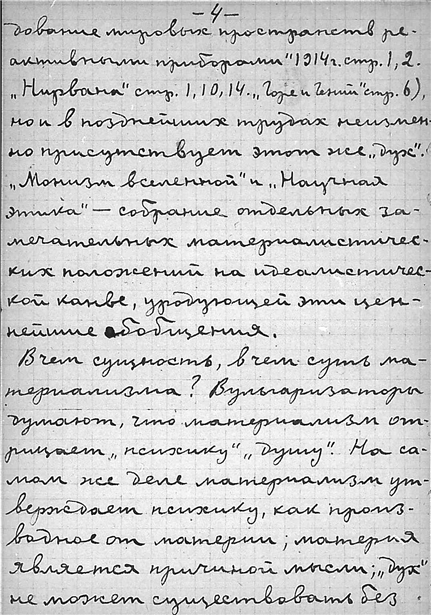 – 4 –
дование мировых пространств ре-
активными приборами" 1914г. стр. 1, 2.
„Нирвана" стр. 1, 10, 14. „Горе и Гений" стр. 6),
но и в позднейших трудах неизмен-
но присутствует этот же „дух".
„Монизм вселенной" и „Научная
этика" — собрание отдельных за-
мечательных материалистичес-
ких положений на идеалистичес-
кой канве, уродующей эти цен-
нейшие обобщения.
В чем сущность, в чем суть ма-
териализма? Вульгаризаторы
думают, что материализм от-
рицает „психику" „душу". На са-
мом же деле материализм ут-
верждает психику, как произ-
водное от материи; материя
является причиной мысли; „дух"
не может существовать без